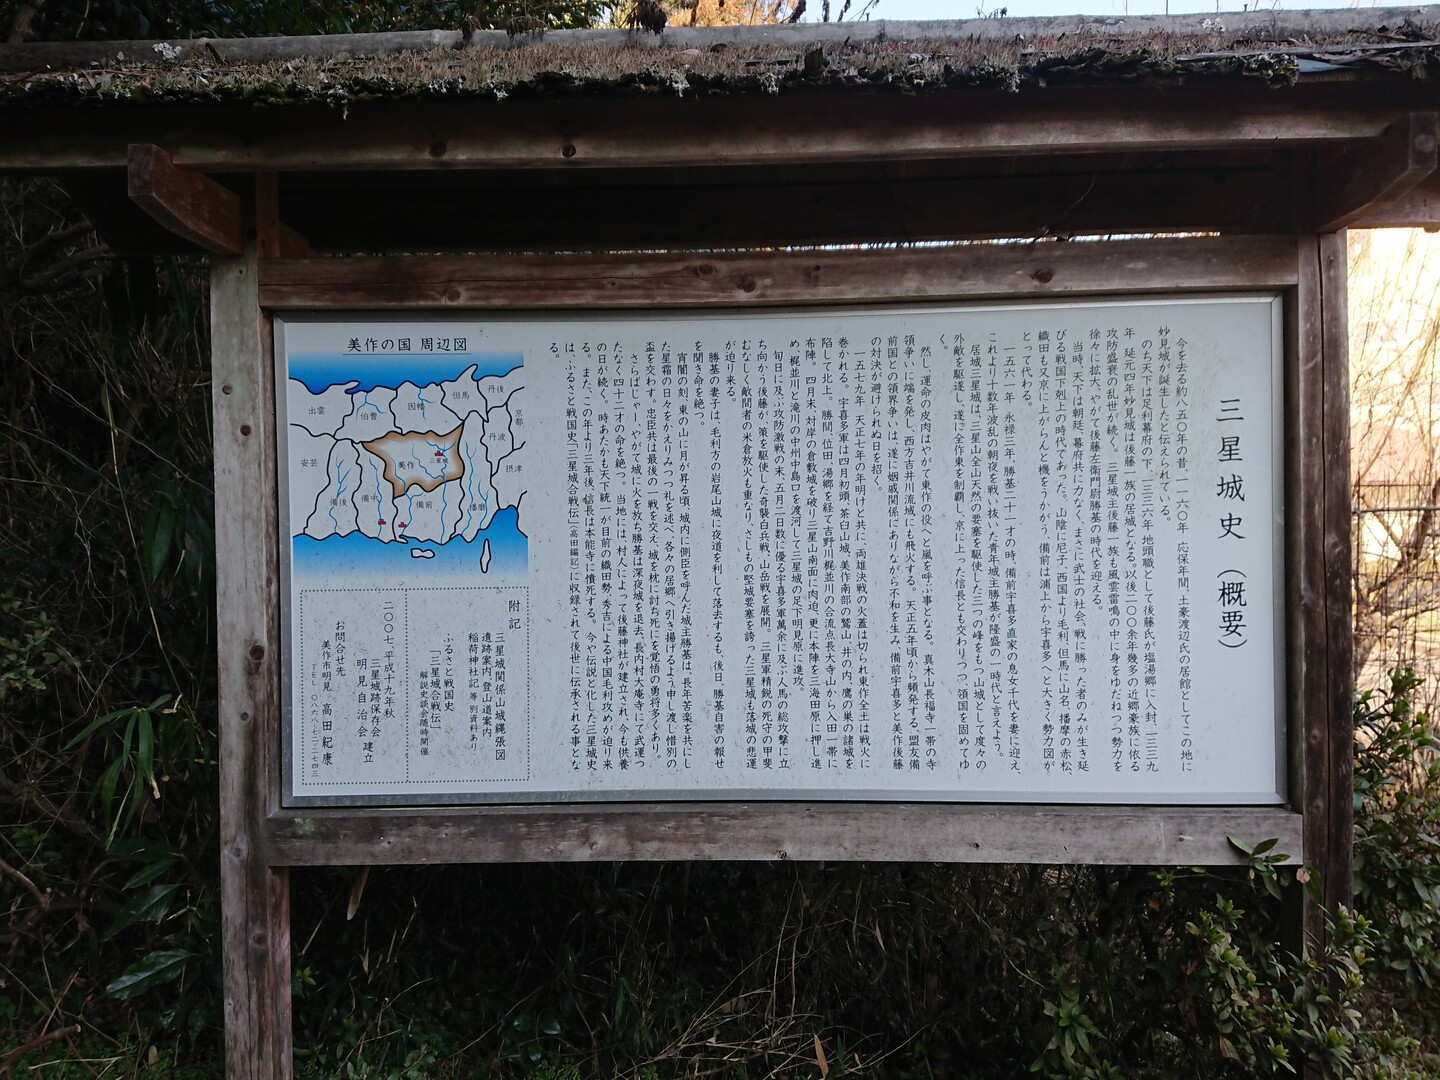 三星城史（概要）
今を去る約八五〇年の昔、一一六〇年 応保年間、土豪渡辺氏の居館としてこの地に
妙見城が誕生したと伝えられている。
のち天下は足利幕府の下、一三三六年 地頭職として後藤氏が塩湯郷に入封、一三三九
年 延元四年妙見城は後藤一族の居城となる。以後二〇〇余年幾多の近郷豪族に依る
攻防盛衰の乱世が続く。三星城主後藤一族も風雲雷鳴の中に身をゆだねつつ勢力を
徐々に拡大、やがて後藤左衛門尉勝基の時代を迎える。
当時、天下は朝廷、幕府共に力なく、まさに武士の社会、戦に勝った者のみが生き延
びる戦国下剋上の時代であった。山陰に尼子、西国より毛利、但馬に山名、播摩の赤松、
織田も又京に上がらんと機をうかがう、備前は浦上から宇喜多へと大きく勢力図が
とって代わる。
一五六一年 永禄三年、勝基二十二才の時、備前宇喜多直家の息女千代を妻に迎え、
これより十数年波乱の朝夜を戦い抜いた青年城主勝基が隆盛の一時代と言えよう。
居城三星城は、三星山全山天然の要塞を駆使した三つの峰をもつ山城として度々の
外敵を駆逐し、遂に全作東を制覇し、京に上った信長とも交わりつつ、領国を固めてゆ
く。
然し、運命の皮肉はやがて東作の役へと嵐を呼ぶ事となる。真木山長福寺一帯の寺
領争いに端を発し、西方吉井川流域にも飛火する。天正五年頃から頻発する、盟友備
前国との領界争いは、遂に姻戚関係にありながら不和を生み、備前宇喜多と美作後藤
の対決が避けられぬ日を招く。
一五七九年 天正七年の年明けと共に、両雄決戦の火蓋は切られ東作全土は戦火に
巻かれる。宇喜多軍は四月初頭、茶臼山城、美作南部の鷲山、井の内、鷹の巣の諸城を
陥して北上。勝間、位田、湯郷を経て吉野川梶並川の合流点長大寺山から入田一帯に
布陣。四月末、対岸の倉敷城を破り三星山南面に肉迫、更に本陣を三海田原に押し進
め、梶並川と滝川の中州中島口を渡河して三星城の足下明見原に進攻。
旬日に及ぶ攻防激戦の末、五月二日数に優る宇喜多軍萬余に及ぶ人馬の総攻撃に立
ち向かう後藤が、策を駆使した奇襲白兵戦、山岳戦を展開。三星軍精鋭の死守の甲斐
むなしく敵間者の米倉放火も重なり、さしもの堅城要塞を誇った三星城も落城の悲運
が迫り来る。
勝基の妻子は、毛利方の岩尾山城に夜道を利して落去するも、後日、勝基自害の報せ
を聞き命を絶つ。
宵闇の刻、東の山に月が昇る頃、城内に側臣を呼んだ城主勝基は、長年苦楽を共にし
た星霜の日々をかえりみつつ礼を述べ、各々の居郷へ引き揚げるよう申し渡し惜別の
盃を交わす。忠臣共は最後の一戦を交え、城を枕に討ち死にを覚悟の勇将多くあり。
さらばじゃー、やがて城に火を放ち勝基は深夜城を退去、長内村大庵寺にて武運つ
たなく四十二才の命を絶つ。当地には、村人によって後藤神社が建立され、今も供養
の日が続く。時あたかも天下統一が目前の織田勢、秀吉による中国毛利攻めが迫り来
る。また、この年より三年後、信長は本能寺に憤死する。今や伝説と化した三星城史
は、ふるさと戦国史「三星城合戦伝」（高田編記）に収録されて後世に伝承される事とな
る。
美作の国 周辺図
丹後
但馬
因幡
伯耆
出雲
京都
丹波
美作
三星城
摂津
安芸
備後
備中
備前
播磨
附記
三星城関係山城縄張図
遺跡案内、登山道案内
稲荷神社記 等 別資料あり
ふるさと戦国史
「三星城合戦伝」
解説史談会随時開催
二〇〇七 平成十九年秋
三星城跡保存会
明見自治会 建立
お問合せ先
美作市明見 高田紀康
TEL 〇八六八-七二-二七四三